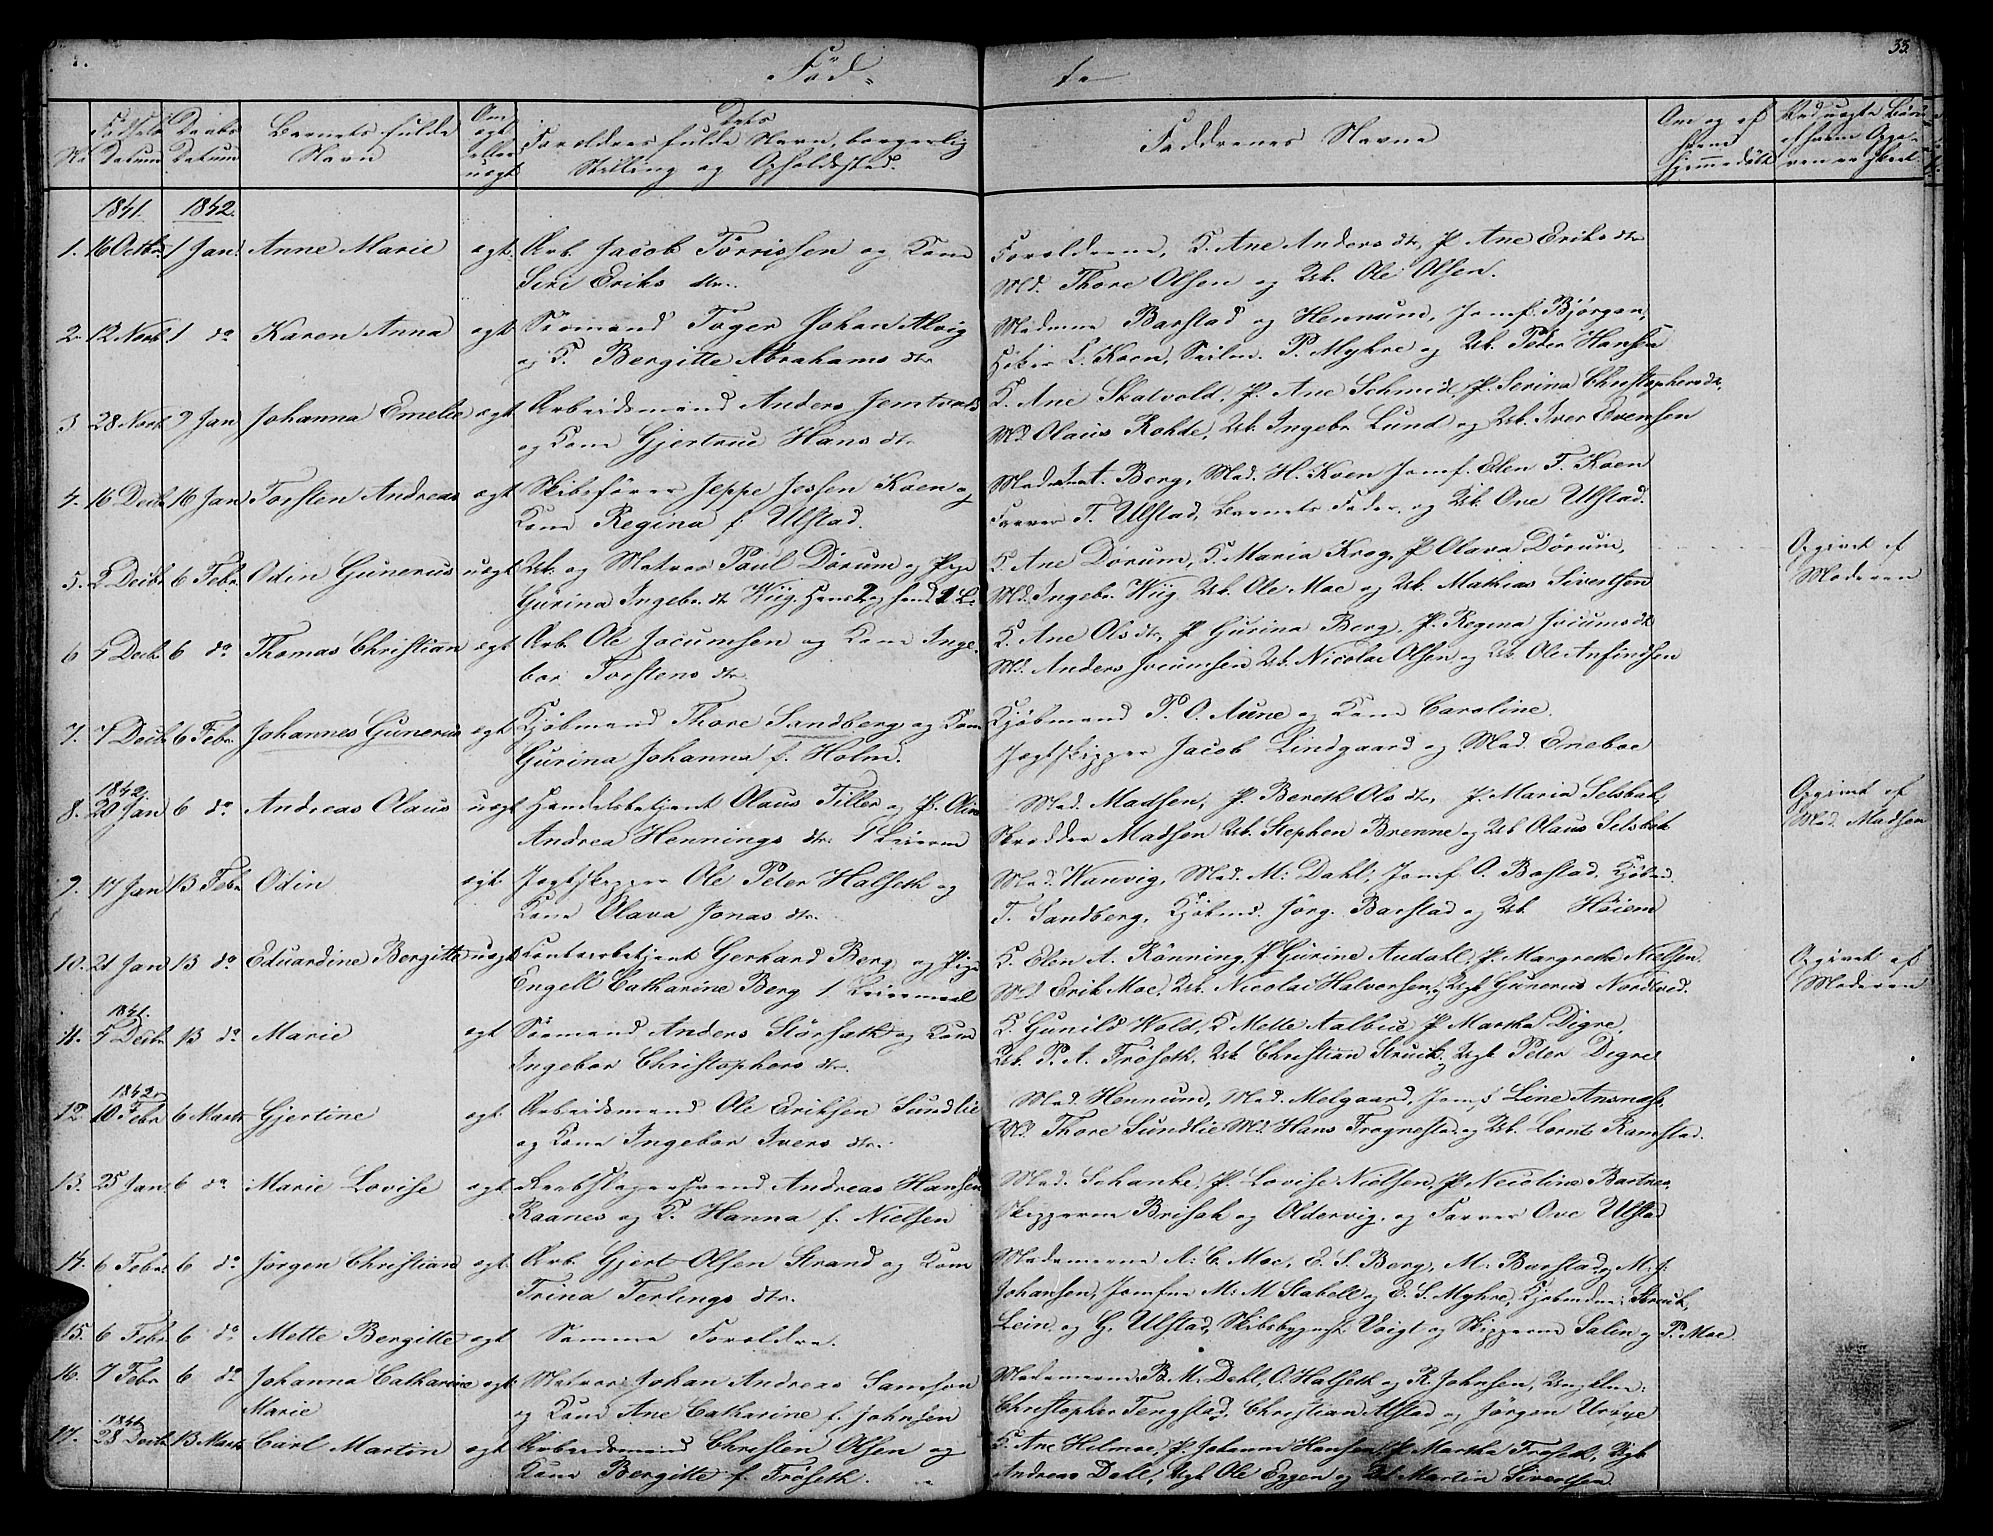 Föd-
te
33.
No
Födsels
Datum
Daabs
Datum
Barnets fulde
Navn
Om
ægte
eller
uægte
Dets
Forældres fulde Navn, borgerlig
Stilling og Opholdssted.
Faddrenes Navne
Om og af
hvem
hjemmedöbt
Ved uægte Børn
af hvem Opga-
ven er skeet
1841. 1842.
1. 16 Octbr. 1 Jan. Anne Marie ægt. Arb. Jacob Törrissen og Kone
Siri Eriks dtr.
Forældrene, K. Ane Anders dtr, P. Ane Eriks dtr
Md. Thore Olsen og Uk. Ole Olsen.
2. 12 Novb. 1 do Karen Anna ægt Sömand Töger Johan Alvig
og K. Bergitte Abrahams dtr
Madame Barstad og Hennum, Jomf. Bjørgan,
L. Koen, P. Myhre og Uk. Peder Hansen
3 28 Novb. 2 Jan Johanna Emelie ægt Arbeidsmand Anders Jemtvold
og Kone Gjertrue Hans dtr
K. Ane Skatvold, P. Ane Schmidt, P. Serina Christophersdtr,
Md. Olaus Rohde, Uk. Ingebr. Lund og Uk. Iver Evensen
4. 16 Decbr 16 Jan Torsten Andreas ægt Skibsfører Jeppe Jessen Koen og
Kone Regina f. Ulstad.
Madame A. Berg, Mad. H. Koen Jomf. Elen T. Koen
Farver T. Ulstad, Barnets Fader, og Uk. Ove Ulstad.
5. 2 Decbr 6 Febr. Odin Gunerus uægt Uk. og Matros Paul Dörum og Pige
Gurina Ingebr. dtr Wiig. Hans 2 og hendes 1 L.
K. Ane Dörum, K. Maria Krog, P. Olava Dörum,
Md. Ingebr. Wiig, Uk. Ole Moe og Uk. Mathias Sivertsen
Opgivet af
Moderen
6 4 Decbr 6 do Thomas Christian ægt Arb. Ole Jocumsen og Kone Inge-
bor Torstens dtr.
K. Ane Ols dtr, P. Gurina Berg, P. Regina Jocumsdtr
Md. Anders Jocumsen, Uk. Nicolai Olsen og Uk. Ole Anfindsen
7. 7 Decbr 6 Febr. Johannes Gunerus ægt Kjöbmand Thore Sandberg og Kone
Gurina Johanna f. Holm.
Kjöbmand P. O. Aune og Kone Caroline.
Jægtskipper Jacob Lindgaard og Mad. Eneboe
1842.
8. 20 Jan 6 do Andreas Olaus uægt Handelsbetjent Olaus Tiller og P. Oline
Andrea Hennings dtr. 1 Leierm
Mad. Madsen, P. Bereth Ols dtr, P. Maria Selsbak,
Skrædder Madsen, Uk. Stephen Brenne og Uk Olaus Selsbak
Opgivet af
Mad. Madsen
9. 17 Jan 13 Febr Odin ægt Jægtskipper Ole Peter Halseth og
Kone Olava Jonas dtr.
Mad. Wanvig, Mad. M. Dahl, Jomf O. Bastad, Kjöbmd.
T. Sandberg, Kjöbmd. Jörg. Barstad og Uk. Höiem
10. 21 Jan 13 do Eduardine Bergitte uægt Contorbetjent Gerhard Berg og Pige
Engell Catharine Berg 1. Leiermaal
K. Elen A. Rönning, P. Gurine Audahl, P. Margrethe Nielsen.
Md Erik Moe, Uk. Nicolai Halvorsen, og Ugk Gunerus Nordtvedt.
Opgivet af
Moderen
1841.
11. 5 Decbr. 13 do Marie ægt Sömand Anders Störseth og Kone
Ingebor Christophers dtr.
K. Gunild Wold, K Mette Aalbue, P. Martha Digre,
Uk. P. A. Fröseth, Uk. Christian Struik, og Ugk Peter Digre
1842.
12. 10 Febr 6 Marts Gjertine ægt Arbeidsmand Ole Eriksen Sundlie
og Kone Ingebor Ivers dtr.
Mad. Hennum, Mad. Melgaard, Jomf Line Ansnæs,
Md. Thore Sundlie, Md. Hans Trognestad og Uk. Lornts Ramstad.
13. 25 Jan. 6 do Marie Lovise ægt Rebslagersvend Andreas Hansen
Raanes og K. Hanna f. Nielsen
Mad. Schanke, P. Lovise Nielsen, P. Nicoline Bartnes,
Skipperne Brisak og Oldervig, og Farver Ove Ulstad
14. 6 Febr. 6 do Jörgen Christian ægt. Arb. Gjert Olsen Strand og Kone
Trina Terlings dtr.
Madamerne A: C. Moe, E. S. Berg, M: Barstad og M: J:
Johansen, Jomfrue M: M Stabell og E. S. Myhre, Kjöbmdne: Struck,
15. 6 Febr 6 do Mette Bergitte ægt Samme Forældre.
Lein og G. Ulstad, Skibsbygmst. Voigt og Skipperne Salin og P. Moe
16. 7 Febr 6 do Johanna Catharine ægt Matros Johan Andreas Samson
Marie og Kone Ane Catharine f. Johnsen
Madamerne B. M. Dahl, O. Halseth og R. Johnsen, Ungklne:
Christopher Tengstad, Christian Alstad og Jörgen Urbye
1841
17. 28 Decbr 13 Marts Carl Martin ægt Arbeidsmand Christen Olsen og
Kone Bergitte f. Fröseth.
K. Ane Helmoe, P. Johanna Hansen, P. Martha Froseth, Ugk
Andreas Dall, Ugk Ole Eggen og Uk Martin Sivertsen